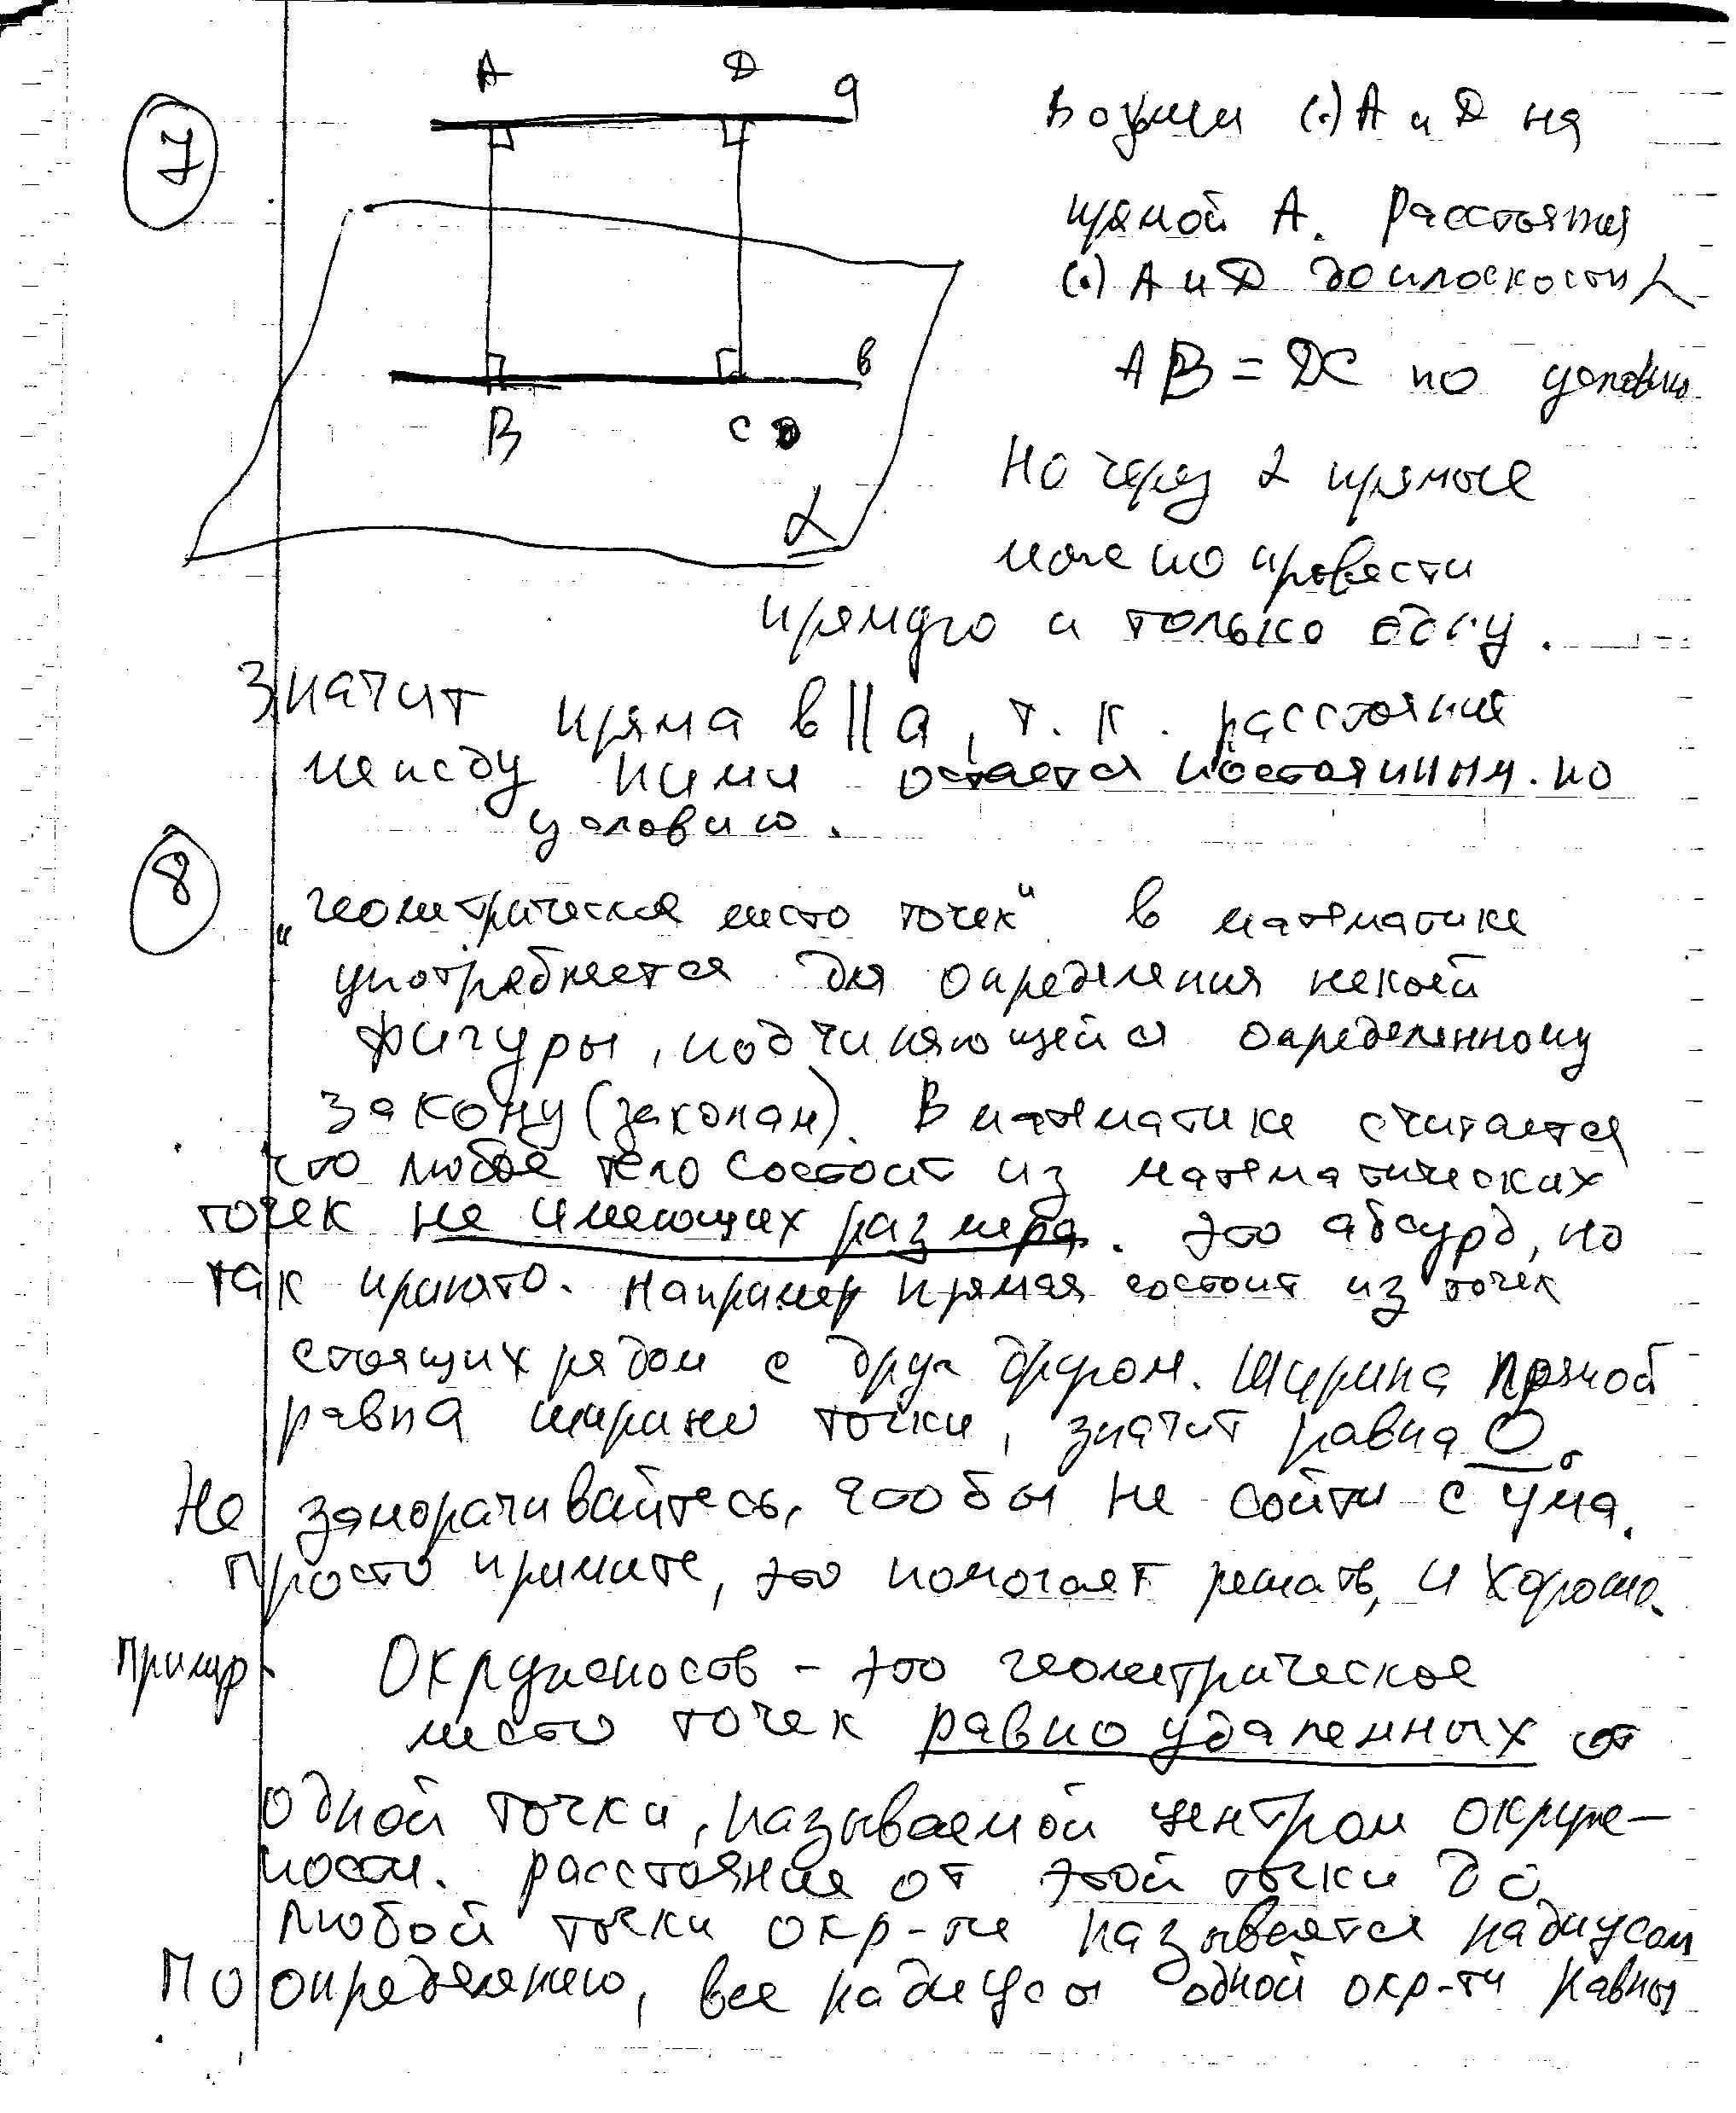 7
A D a
B C b
α
Возьмем (·) A и D на
прямой А. Расстояния
(·) A и D до плоскости α
AB = DC по условию
Но через 2 прямые
можно провести
прямую и только одну.
Значит прямая b || a, т. к. расстояние
между ними остается постоянным по
условию.
8
„геометрическое место точек" в математике
употребляется для определения некоей
фигуры, подчиняющейся определенному
закону (законам). В математике считается
что любое тело состоит из математических
точек не имеющих размера. Это абсурд, но
так принято. Например прямая состоит из точек
стоящих рядом с друг другом. Ширина прямой
равна ширине точки, значит равна 0.
Не заморачивайтесь, чтобы не сойти с ума.
Просто примите, это помогает решать, и хорошо.
Пример. Окружность – это геометрическое
место точек равно удаленных от
одной точки, называемой центром окруж-
ности. расстояние от этой точки до
любой точки окр-ти называется радиусом
По определению, все радиусы одной окр-ти равны